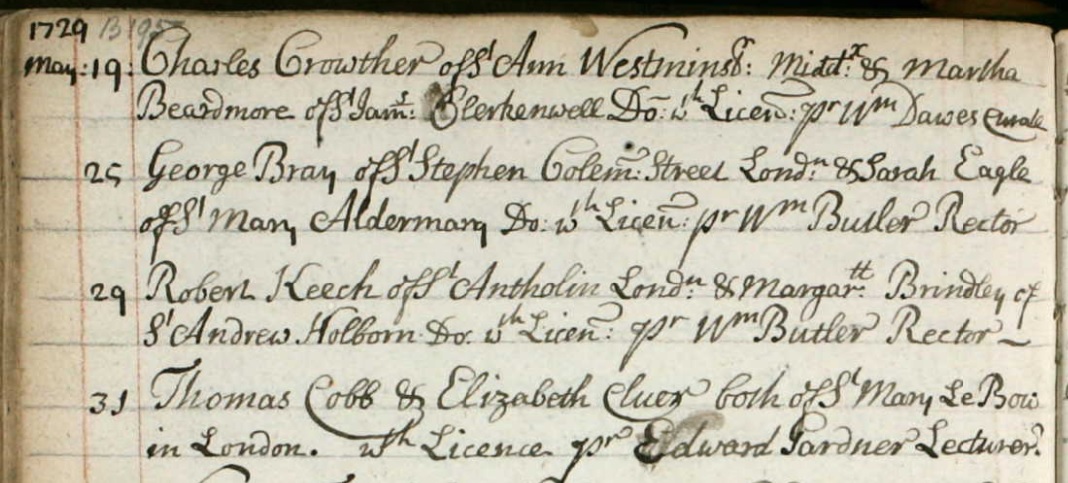 1729
May: 19: Charles Crowther of St Ann Westminstr: Middx: & Martha
Beardmore of St Jams: Clerkenwell Do: wth Licen: pr Wm Dawes Curate
25 George Bray of St Stephen Colem: Street Londn: & Sarah Eagle
of St Mary Aldermary Do: wth Licen: pr Wm Butler Rector
29 Robert Keech of St Antholin Londn: & Margartt: Brindley of
St Andrew Holborn Do: wth Licen: pr Wm Butler Rector
31 Thomas Cobb & Elizabeth Cluer both of St Mary Le Bow
in London. wth Licence pr Edward Gardner Lecturer.